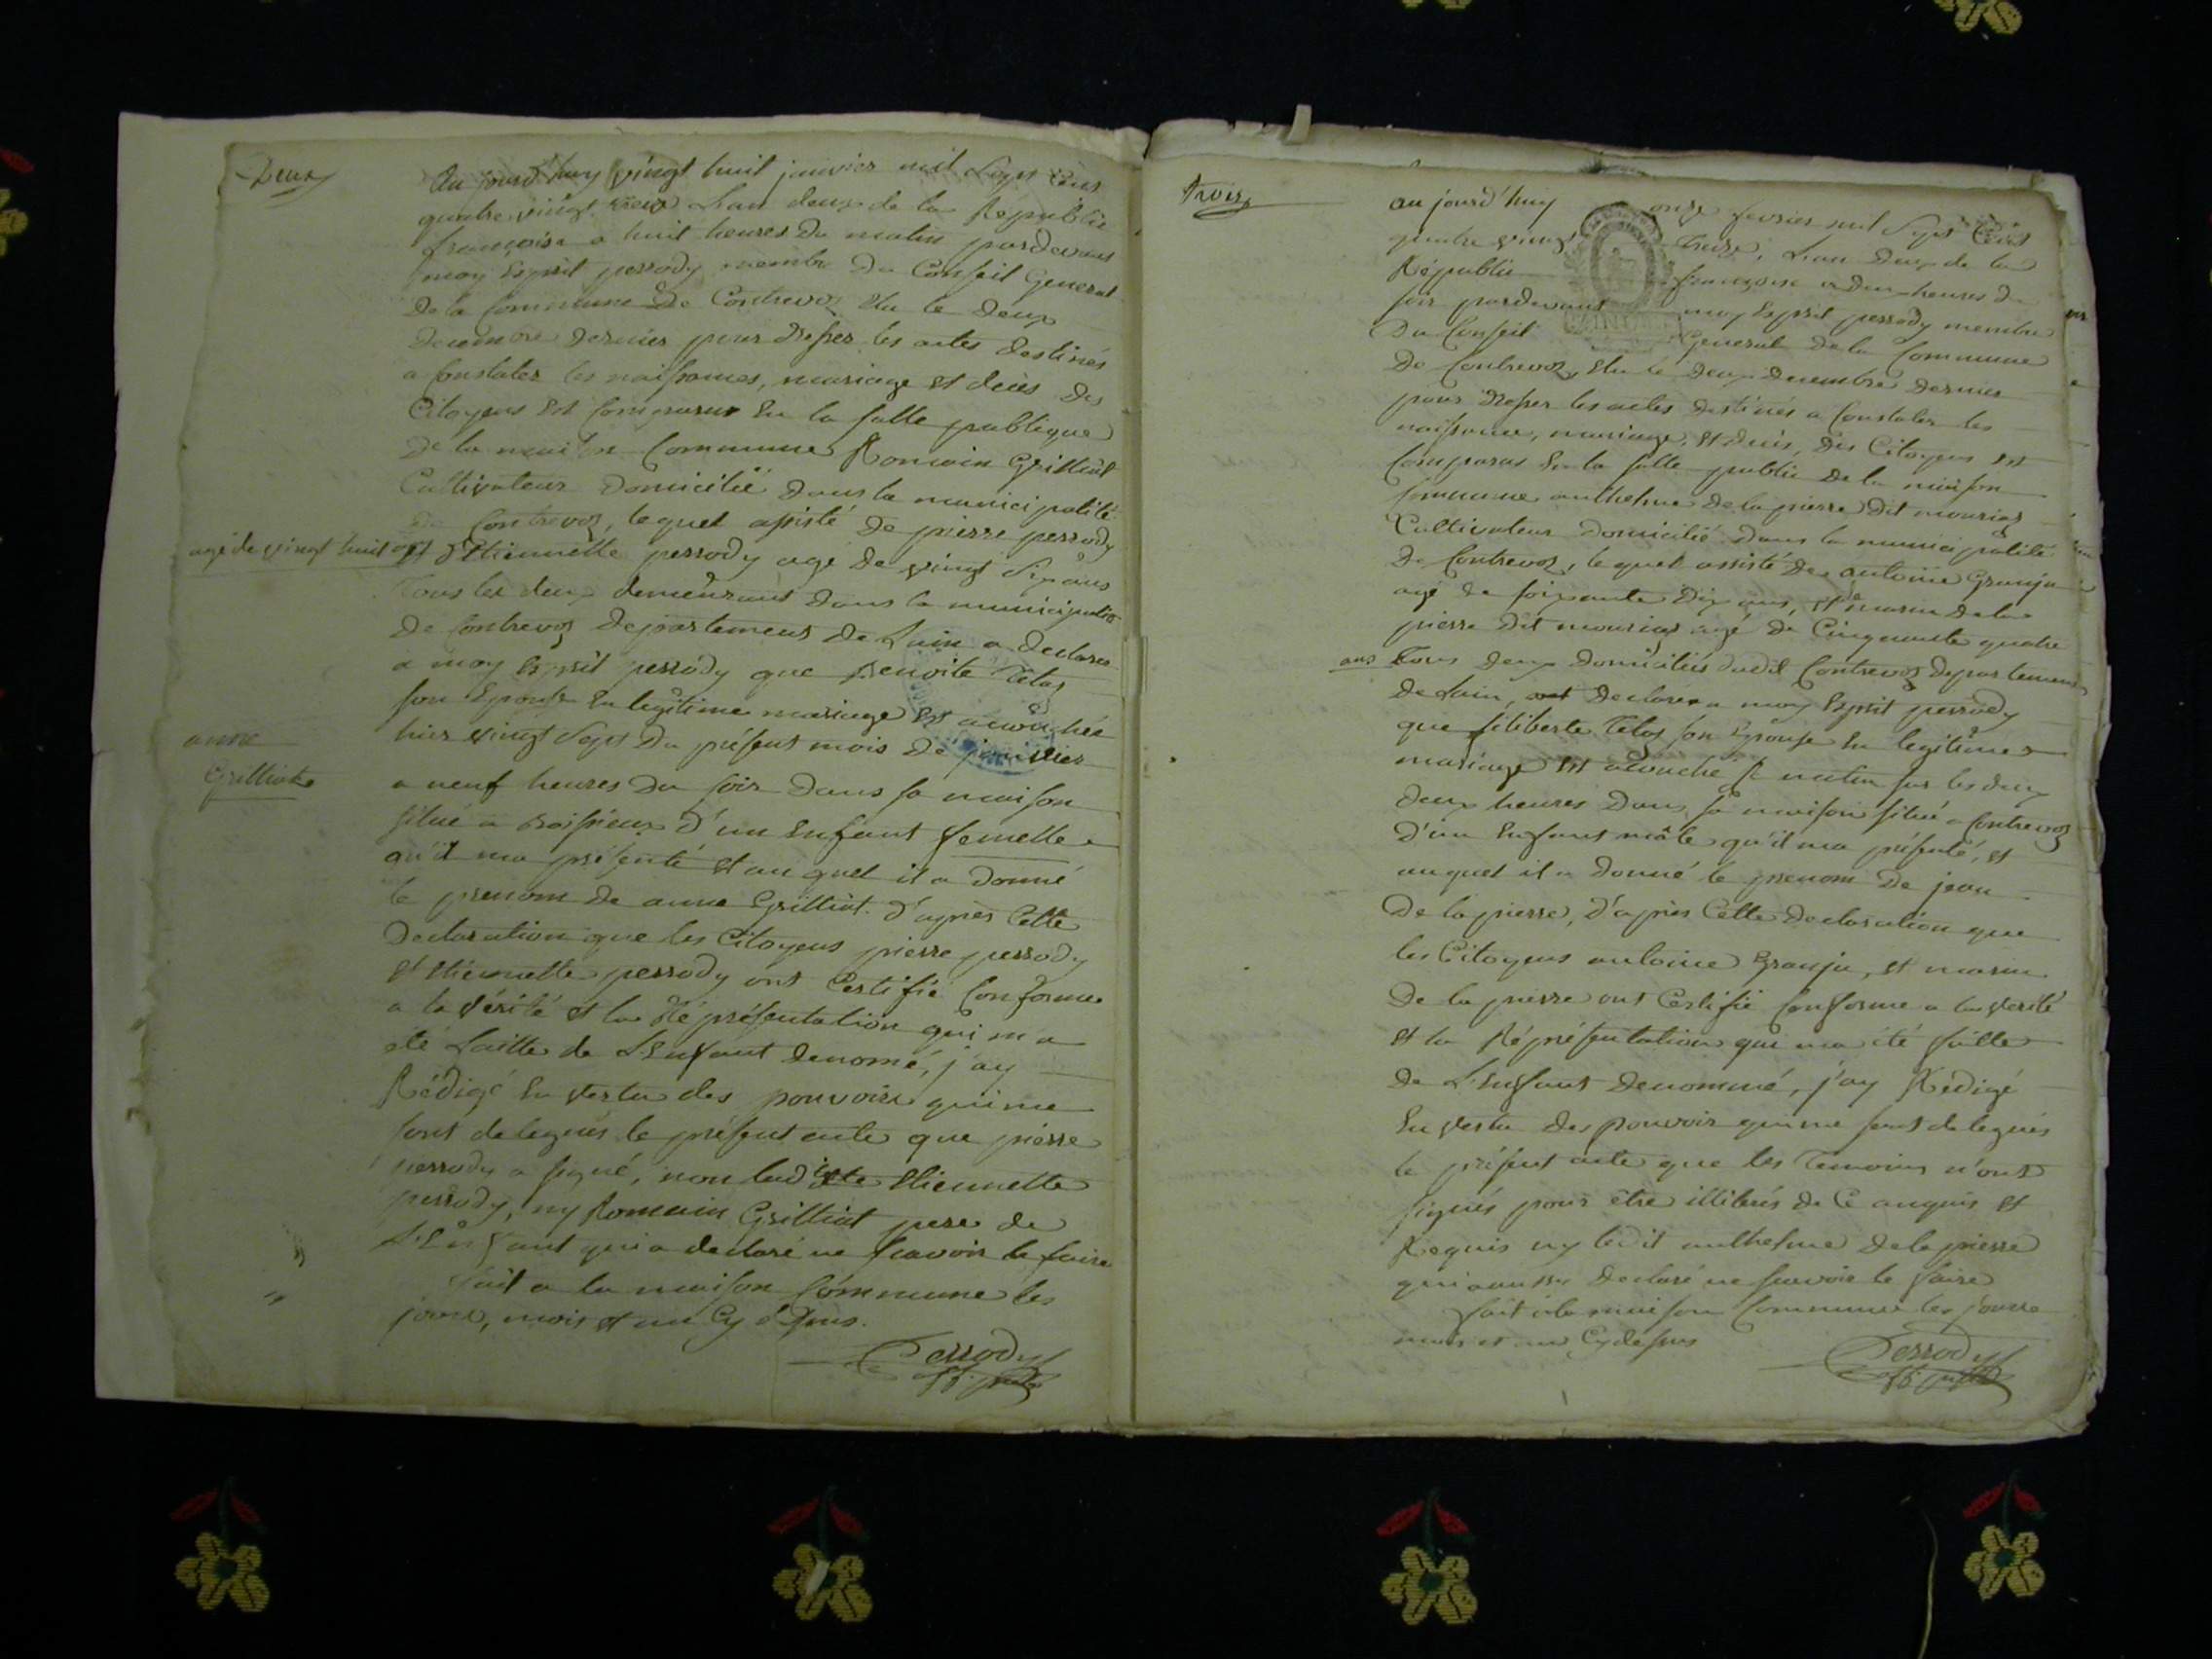 Deux
Au jourd'huy vingt huit janvier mil Sept Cens
quatre vingt treize L'an deux de la Republic
françoise a huit heures du matin pardevant
moy Esprit perrody membre du Conseil General
De la Commune De Contrevoz Elu le Deux
Decembre Dernier pour dresser les actes destinés
a Constater les naissances, mariage et décès des
Citoyens Est Comparur En la salle publique
De la maison Commune Romain Grilliat
Cultivateur Domicilié dans la municipalité
De Contrevoz, lequel assisté De pierre perrody
agé de vingt huit ans
et d'Etiennette perrody agé De vingt Six ans
Tous les deux demeurants dans la municipalité
De Contrevoz Departement de Lain a declaré
a moy Esprit perrody que Benoite Tetaz
son Epouse En legitime mariage Est acouchée
hier vingt Sept Du présent mois De janvier
anne
Grilliate
a neuf heures Du soir Dans sa maison
situé a D'un Enfant femelle
qu'il ma présenté et au quel il a Donné
le prenom de anne Grilliat. D'après Cette
Declaration que les Citoyens pierre perrody
et Etiennette perrody ont Certifié Conforme
a la Vérité et la Réprésentation qui m'a
été faitte de L'Enfant denomé, j'ay
Rédigé En Vertu des pouvoirs qui me
sont delegués le présent acte que pierre
perrody a signé, non ladite Etiennette
perrody, ny Romain Grilliat pere de
L'Enfant qui a declaré ne Scavoir le faire
fait a la maison Commune les
jours, mois et an Cy dessus.
Perrody
Trois
au jourd'huy onze fevrier mil Sept Cens
quatre vingt treize, L'an Deux de la
Républic françoise a deux heures du
soir pardevant moy Esprit perrody membre
Du Conseil General De la Commune
De Contrevoz, Elu le Deux Decembre Dernier
pour dresser les actes destinés a Constater les
naissance, mariage, et decès, des Citoyens Est
Comparus En la salle public De la maison
Commune anthelme De la pierre Dit
Cultivateur Domicilié Dans la municipalité
De Contrevoz, lequel assisté De antoine Granju
agé de soixante Dix ans, et de marin De la
pierre Dit agé De Cinquante quatre
ans Tous Deux Domiciliés dudit Contrevoz Departement
De Lain, Declare a moy Esprit perrody
que filiberte Tetaz son Epouse En legitime
mariage Est acouché ce matin sur les deux
deux heures Dans sa maison situé a Contrevoz
D'un Enfant mâle qu'il ma présenté, et
auquel il a Donné le prenom De jean
De la pierre, D'après Cette Declaration que
les Citoyens antoine Granju, et marin
De la pierre ont Certifié Conforme a la Verité
et la Réprésentation qui ma été faitte
De L'Enfant Denommé, j'ay Rédigé
En Vertu Des pouvoir qui me sont delegués
le présent acte que les Temoins n'ont
signés pour être illiterés De Ce anquis et
Requis ny ledit anthelme De la pierre
qui a aussi Declaré ne scavoir le faire
fait a la maison Commune les jours
mois et an Cy dessus
Perrody